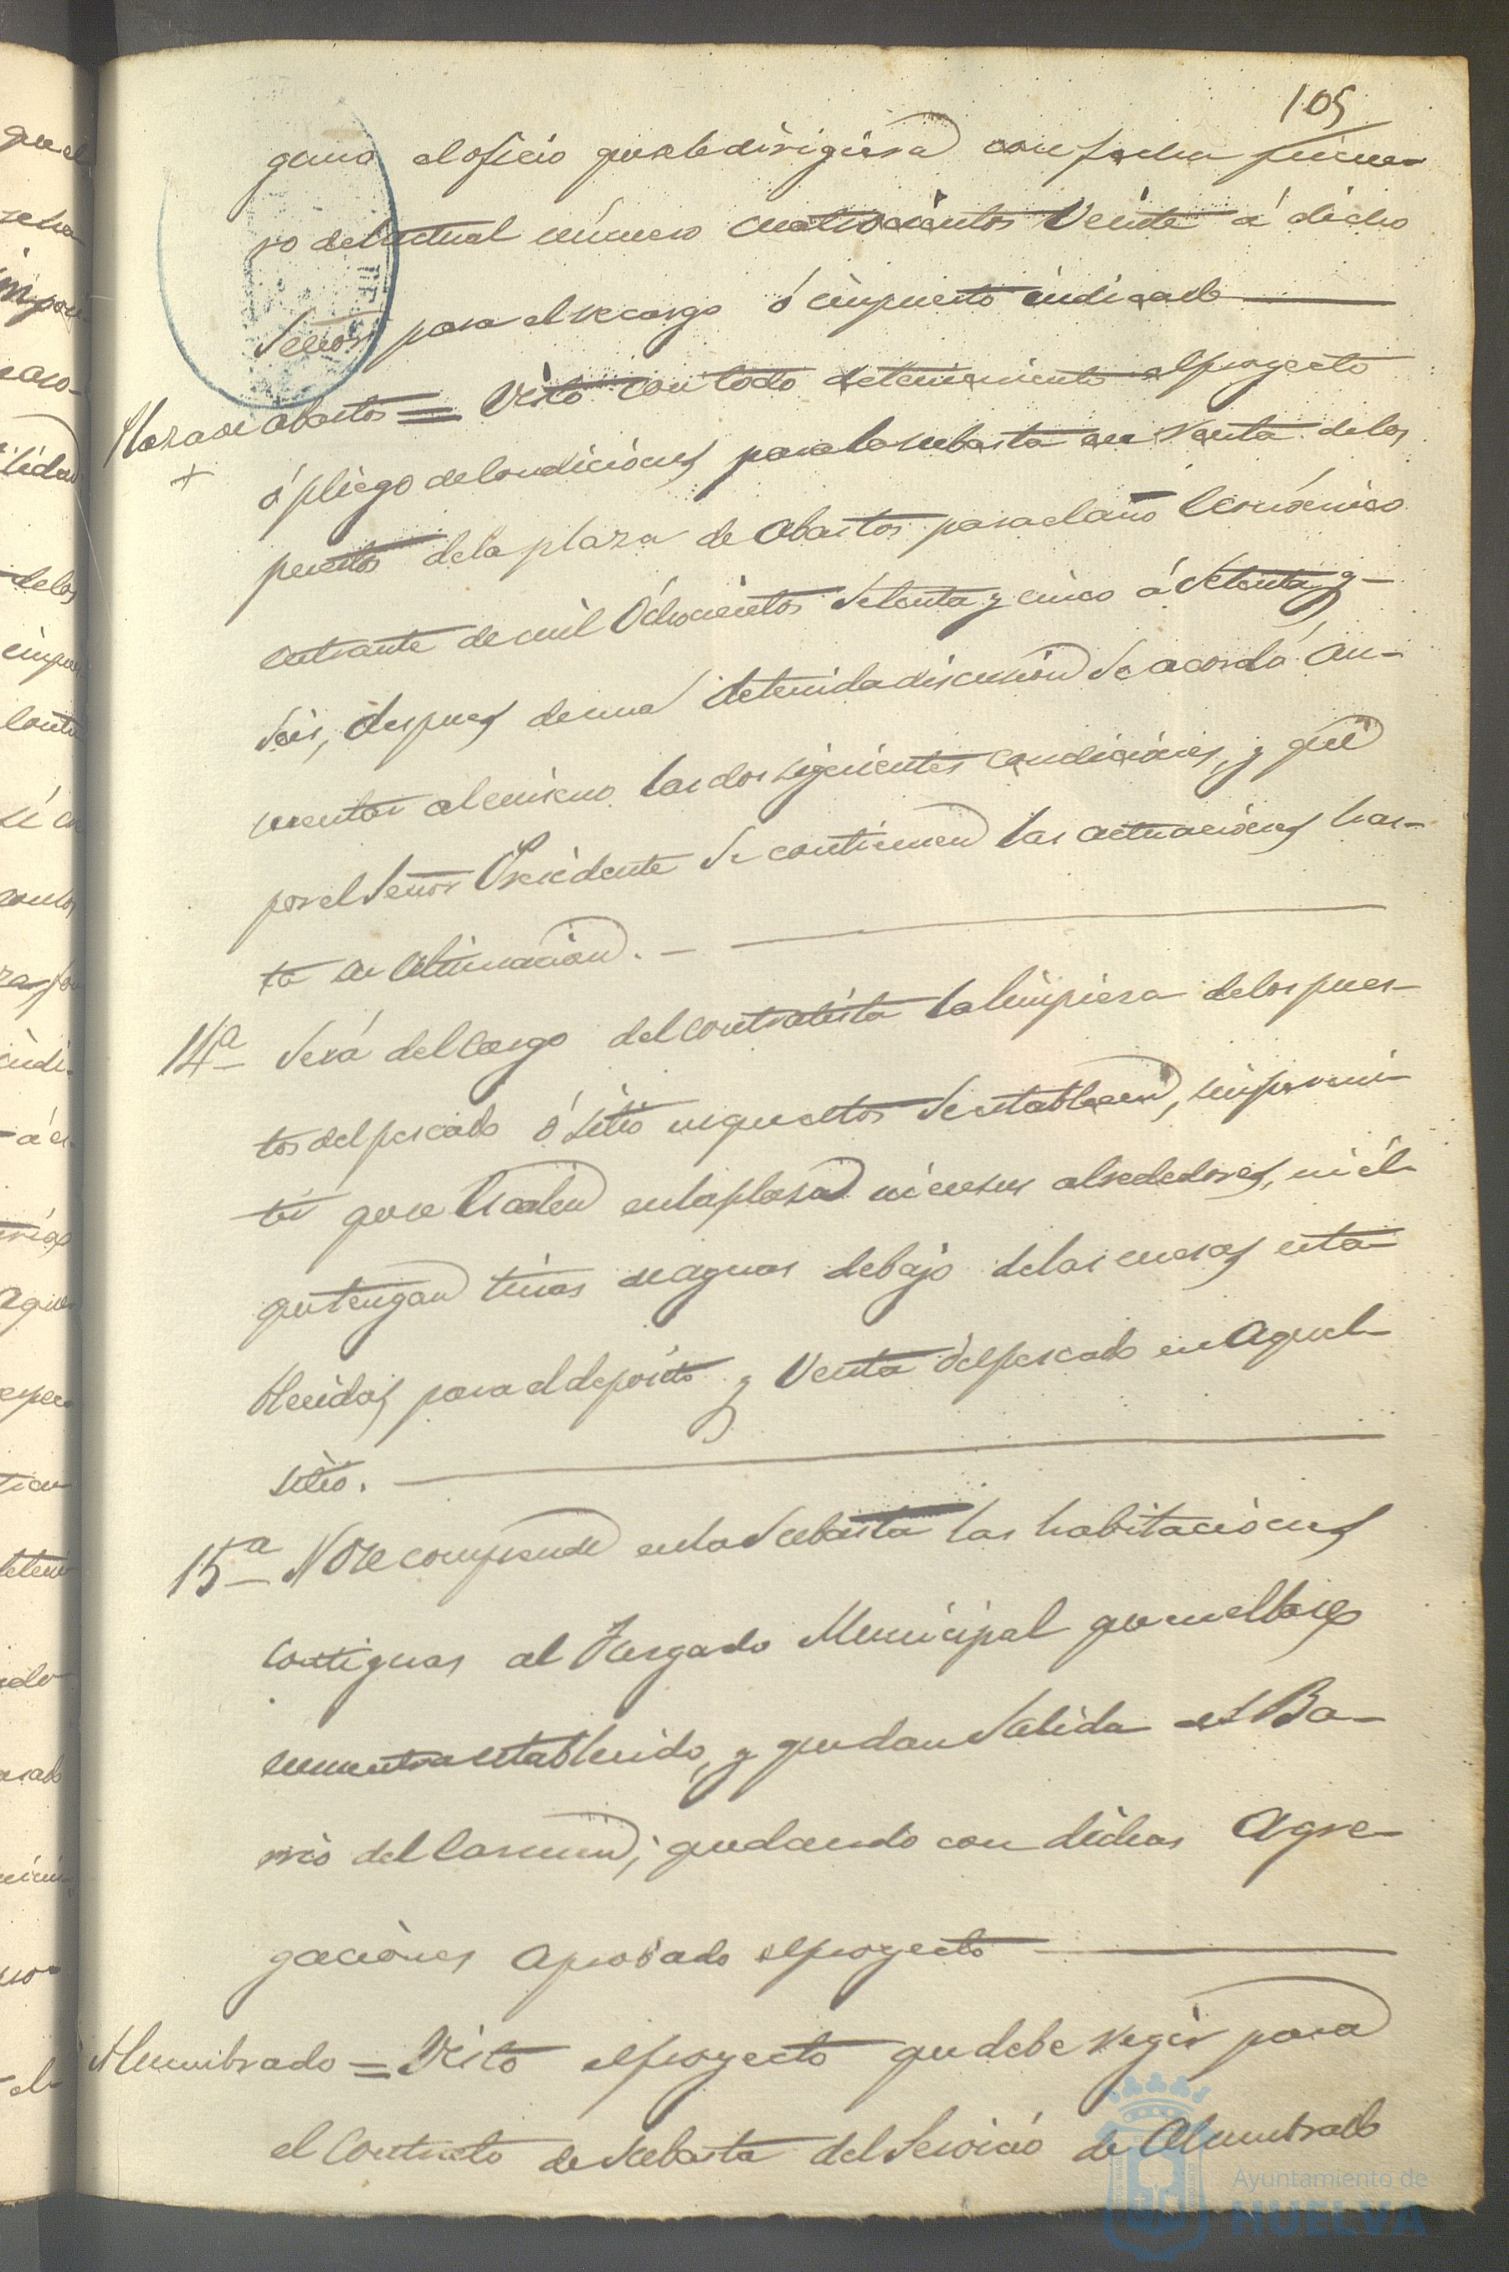 105
guna al oficio que se le dirigiera con fecha prime-
ro del actual número cuatrocientos Veinte á dicho
Señor para el recargo ó impuesto indicado
Plaza de abastos = Visto con todo detenimiento el proyecto
ó pliego de Condiciones para la subasta en renta de los
puestos de la plaza de abastos para el año Económico
entrante de mil Ochocientos Setenta y cinco á Setenta y
Seis, despues de una detenida discusion Se acordó au-
mentar al mismo las dos siguientes condiciones, y que
por el Señor Presidente Se continuen las actuaciones has-
ta su Ultimacion.
14ª Será del Cargo del contratista la limpieza de los pues-
tos del pescado ó Sitio en que estos Se establecen, sin permi-
tir que se Escalen en la plaza ni en sus alrededores, ni él
que tengan tinas de aguas debajo de las mesas esta-
blecidas para el deposito y Venta del pescado en Aquel
sitio.
15ª No se comprende en la Subasta las habitaciones
Contiguas al Juzgado Municipal que en ellas se
encuentra establecido, y que dan Salida al Ba-
rrio del Carmen; quedando con dichas Agre-
gaciones aprobado el proyecto
Alumbrado = Visto el proyecto que debe regir para
el Contrato de Subasta del Servicio de Alumbrado
Ayuntamiento de
HUELVA